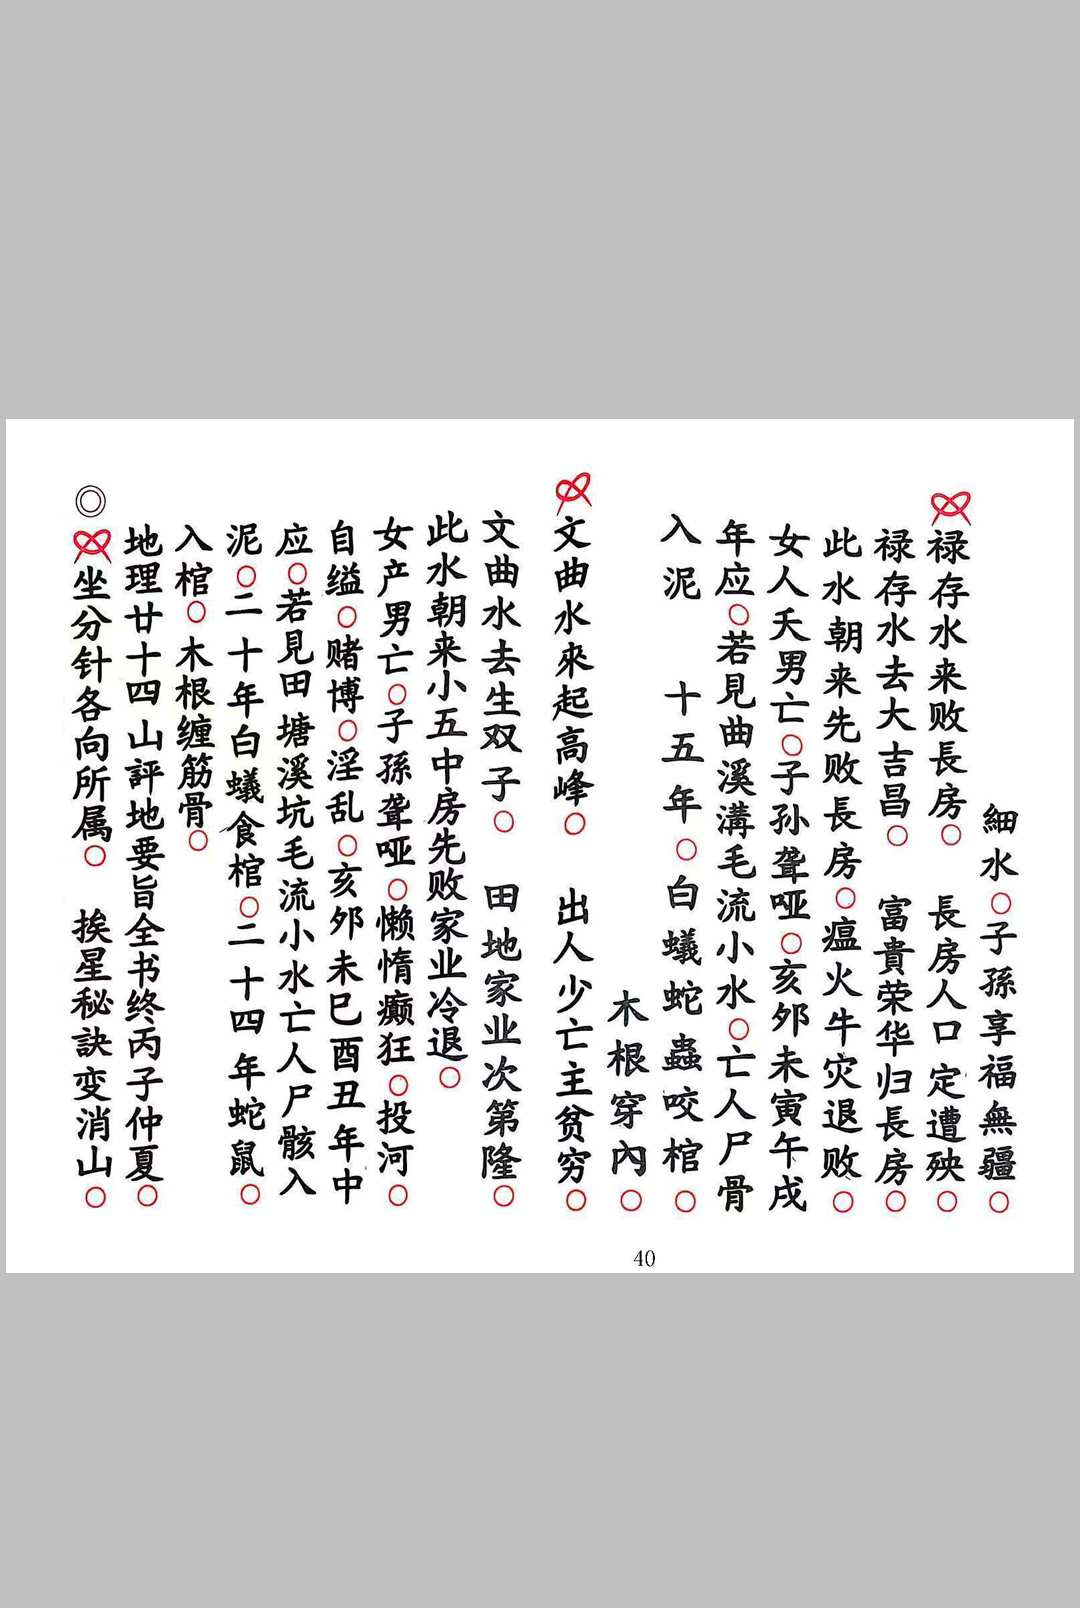 細水○子孫享福無疆○
禄存水来败長房○ 長房人口定遭殃○
禄存水去大吉昌○ 富貴荣华归長房○
此水朝来先败長房○瘟火牛灾退败○
女人夭男亡○子孙聋哑○亥夘未寅午戌
年应○若見曲溪溝毛流小水○亡人尸骨
入泥 十五年○白蟻蛇蟲咬棺○
木根穿內○
文曲水來起高峰○ 出人少亡主贫穷○
文曲水去生双子○ 田地家业次第隆○
此水朝来小五中房先败家业冷退○
女产男亡○子孫聋哑○懒惰癫狂○投河○
自缢○赌博○淫乱○亥夘未巳酉丑年中
应○若見田塘溪坑毛流小水亡人尸骸入
泥○二十年白蟻食棺○二十四年蛇鼠○
入棺○木根缠筋骨○
地理廿十四山評地要旨全书终丙子仲夏○
◎坐分针各向所属○ 挨星秘訣变消山○
40